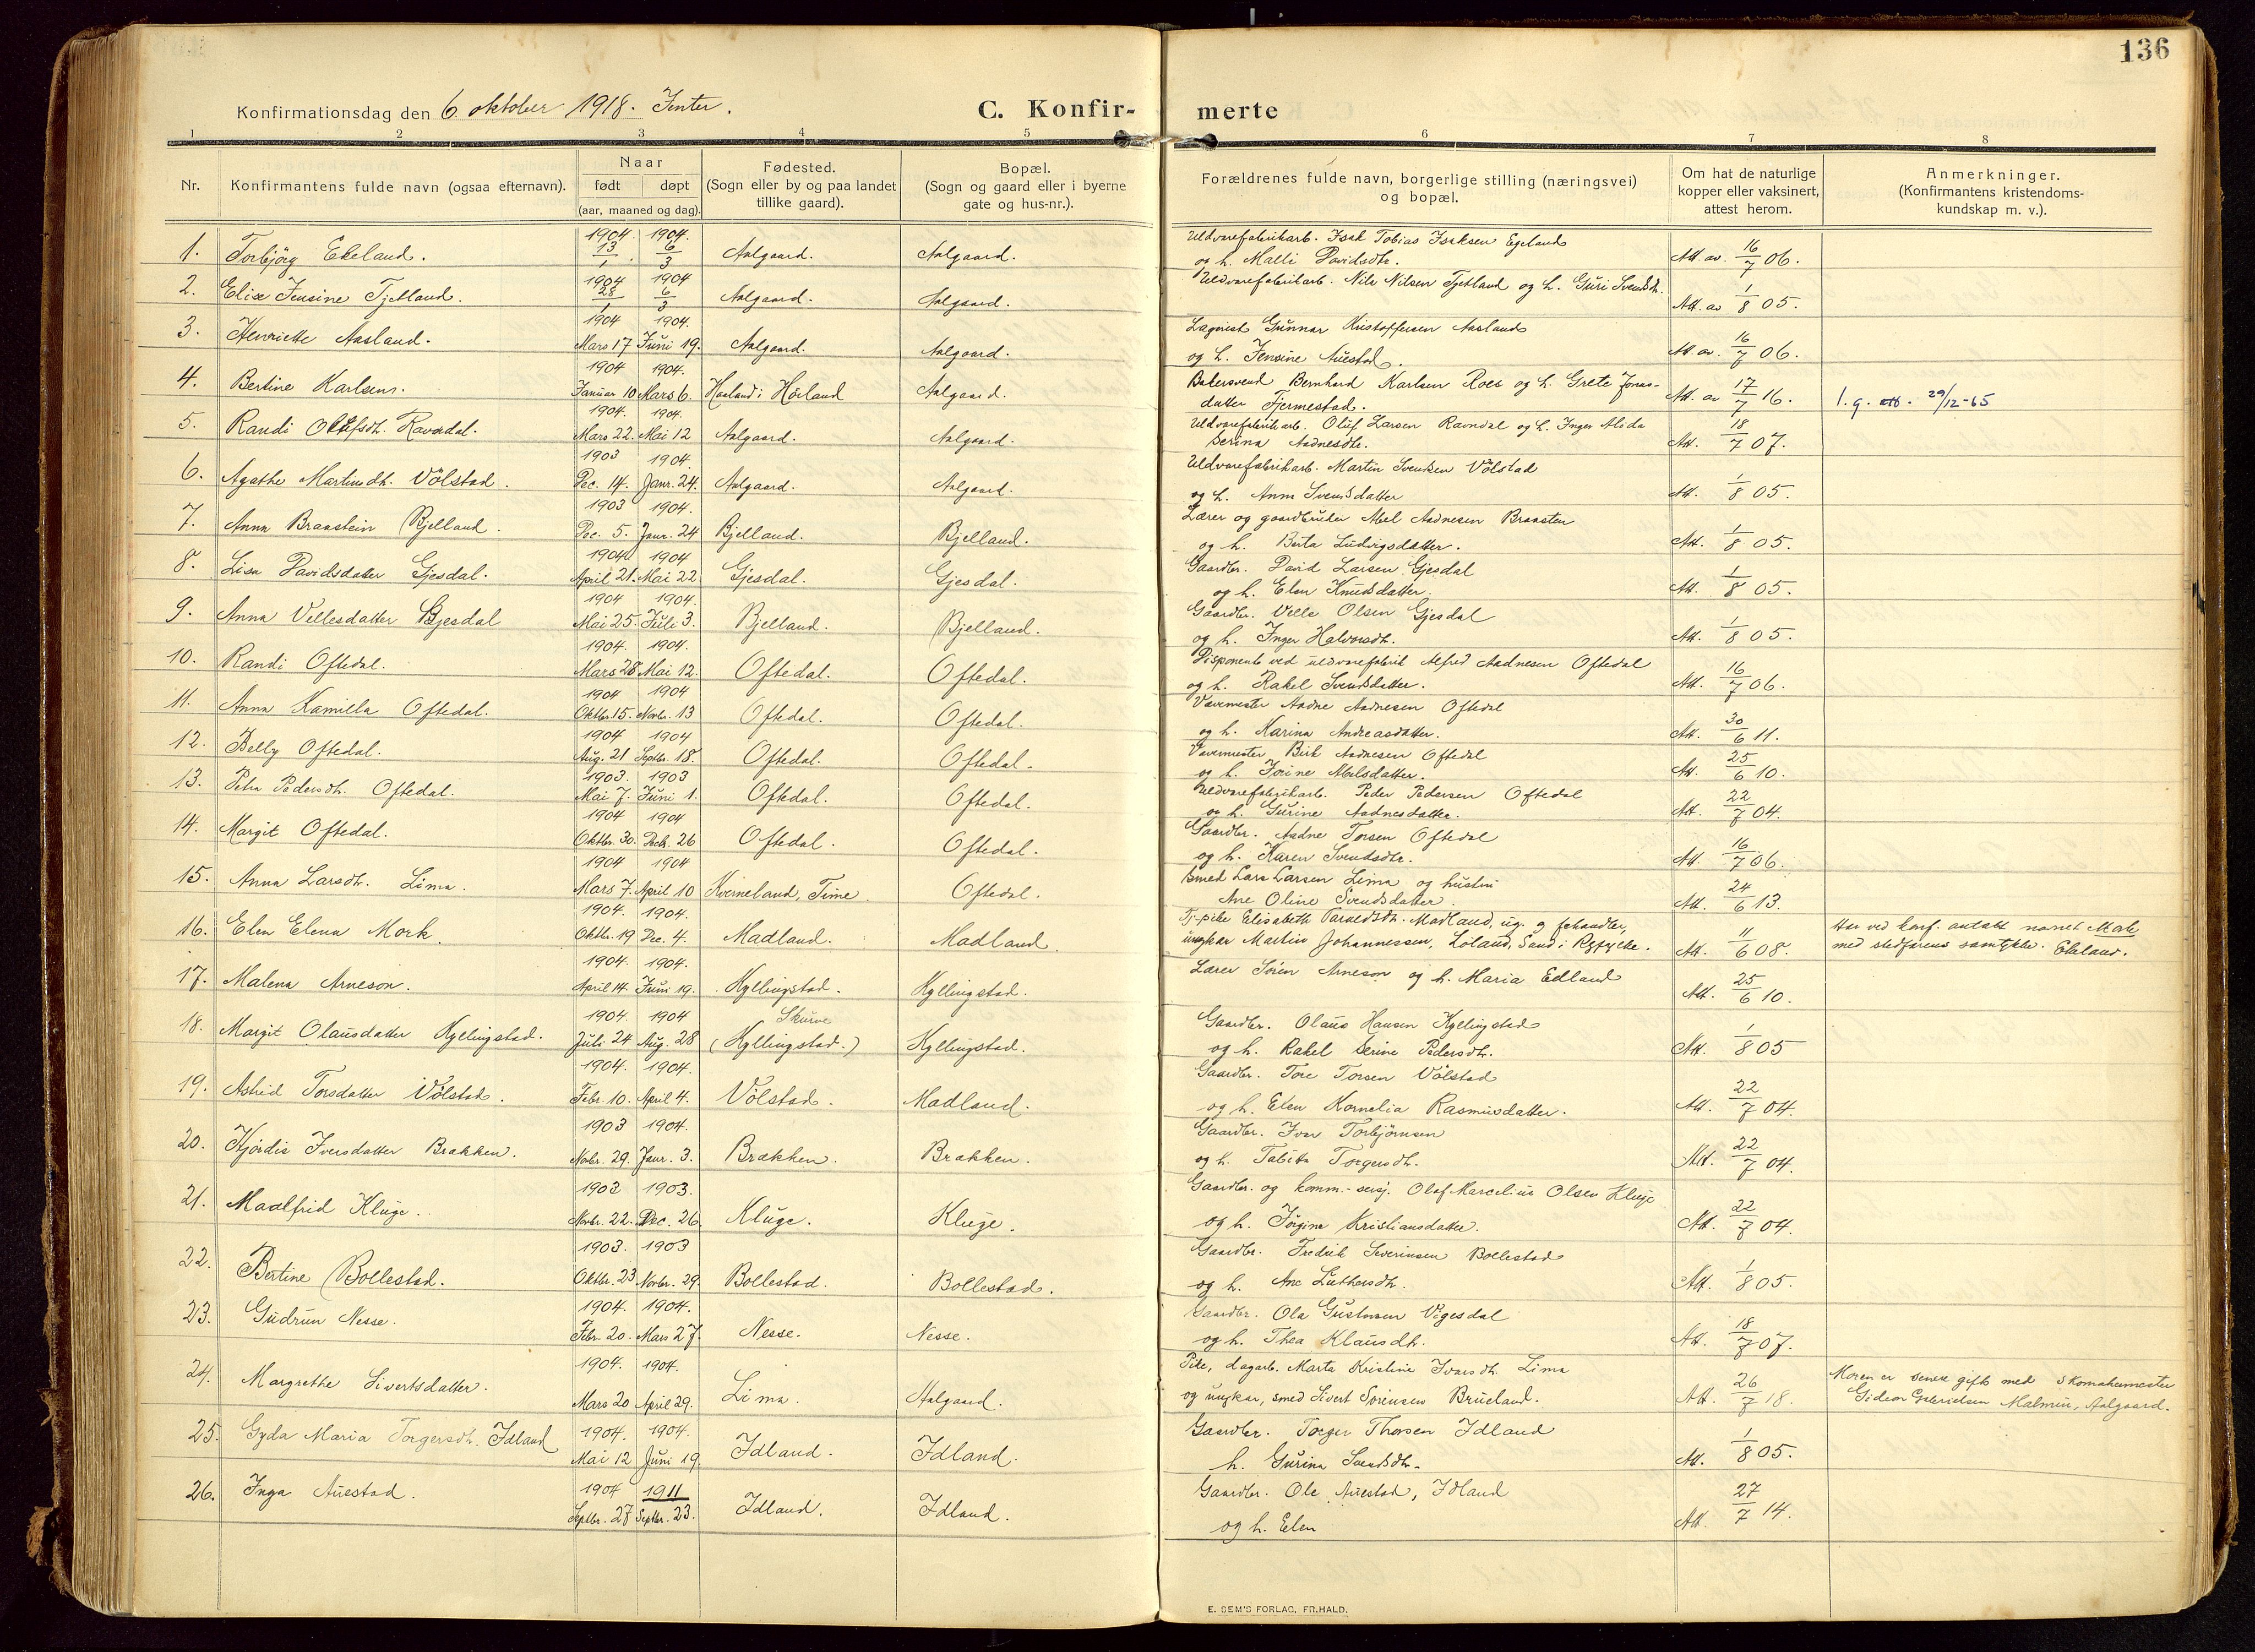 136
Konfirmationsdag den 6. oktober 1918. Jenter.
C. Konfir-
merte
1 2 3 4 5 6 7 8
Nr.
Konfirmantens fulde navn (ogsaa efternavn).
Naar
født døpt
(aar, maaned og dag).
Fødested.
(Sogn eller by og paa landet
tillike gaard).
Bopæl.
(Sogn og gaard eller i byerne
gate og hus-nr.).
Forældrenes fulde navn, borgerlige stilling (næringsvei)
og bopæl.
Om hat de naturlige
kopper eller vaksinert,
attest herom.
Anmerkninger.
(Konfirmantens kristendoms-
kundskap m. v.).
1904. 1904. Uldvarefabrikarb. Isak Tobias Isaksen Egeland
1. Torbjörg Ekeland. 13/1 6/3 Aalgaard. Aalgaard. og h. Malli Davidsdtr. Att. av 16/7 06.
1904 1904 Uldvarefabrikarb. Nils Nilsen Tjetland og h. Guri Svendsdt.
2. Elise Jensine Tjetland. 28/1 6/3 Aalgaard. Aalgaard. Att. av 1/8 05.
1904 1904. Gunnar Kristoffersen Aasland
3. Henriette Aasland. Mars 17 Juni 19. Aalgaard. Aalgaard. og h. Jensine Auestad. Att. av. 16/7 06.
1904 1904. Bakersvend Bernhard Karlsen Roes og h. Grete Jonas-
4. Bertine Karlsen. Januar 10 Mars 6. Haaland i Höiland Aalgaard. datter Fjermestad. Att. av 17/7 16. 29/12-65
1904. 1904. Uldvarefabrikarb. Oluf Larsen Ravndal og h. Inger Alida
5. Randi Olufsdt. Ravndal. Mars 22. Mai 12 Aalgaard. Aalgaard. Serina Aadnesdtr. Att. 18/7 07.
1903 1904. Uldvarefabrikarb. Martin Svendsen Völstad
6. Agathe Martinsdt. Völstad. Dec. 14. Janr. 24. Aalgaard. Aalgaard. og h. Anna Svendsdatter Att. 1/8 05.
1903 1904. Lærer og gaardbruker Abel Aadnesen Braasten
7. Anna Braastein Bjelland. Dec. 5. Janr. 24 Bjelland. Bjelland. og h. Berta Ludvigsdatter. Att. 1/8 05.
1904 1904 Gaardbr. David Larsen Gjesdal
8. Lisa Davidsdatter Gjesdal. April 21. Mai 22 Gjesdal. Gjesdal. og h. Elen Knudsdatter. Att. 1/8 05.
1904 1904. Gaardbr. Velle Olsen Gjesdal
9. Anna Vellesdatter Gjesdal Mai 25. Juli 3. Bjelland. Bjelland. og h. Inger Halvorsdt. Att. 1/8 05.
1904. 1904. Disponent ved uldvarefabrik Alfred Aadnesen Oftedal
10. Randi Oftedal. Mars 28 Mai 12. Oftedal. Oftedal. og h. Rakel Svendsdatter. Att. 16/7 06.
1904 1904 Vævmester Aadne Aadnesen Oftedal
11. Anna Kamilla Oftedal. Oktbr. 15. Novbr. 13 Oftedal. Oftedal. og h. Karina Andreasdatter. Att. 30/6 11.
1904 1904 Vævmester Aadnesen Oftedal
12. Belly Oftedal. Aug. 21 Septbr. 18. Oftedal. Oftedal. og h. Jorine Abelsdatter. Att. 25/6 10.
1903. 1903 Uldvarefabrikarb. Peder Pedersen Oftedal
13. Petra Pedersdt. Oftedal. Mai 7. Juni 1. Oftedal. Oftedal. og h. Gurine Aadnesdatter. Att. 22/7 04.
1904 1904 Gaardbr. Aadne Torsen Oftedal
14. Margit Oftedal. Oktbr. 30. Decb. 26 Oftedal. Oftedal. og h. Karen Svendsdtr. Att. 16/7 06.
1904 1904 Smed Lars Larsen Lima og hustru
15. Anna Larsdt. Lima. Mars 7. April 10 Kverneland, Time. Oftedal. Ane Oline Svendsdatter. Att. 24/6 13.
1904. 1904. Tj-pike Elisabeth Madland, ug. og fehandler,
16. Elen Elena Mork. Oktbr. 19 Dec. 4. Madland. Madland. ungkar Martin Johannessen, Loland, Sand i Ryfylke. Att. 11/6 08.
Har ved konf. antatt navnet Mork
med stedfarens samtykke. Ekeland.
1904. 1904. Lærer Sören Arneson og h. Maria Edland
17. Malena Arneson. April 14. Juni 19. Kyllingstad. Kyllingstad. Att. 25/6 10.
1904. 1904 Skurve Gaardbr. Olaus Hansen Kyllingstad
18. Margit Olausdatter Kyllingstad. Juli 24 Aug. 28 (Kyllingstad.) Kyllingstad. og h. Rakel Serine Pedersdt. Att. 1/8 05
1904. 1904. Gaardbr. Tore Torsen Völstad
19. Astrid Torsdatter Völstad. Febr. 10. April 4. Völstad. Madland. og h. Elen Kornelia Rasmusdatter. Att. 22/7 04.
1903 1904. Gaardbr. Ivar Torbjörnsen
20. Hjördis Iversdatter Brækken. Novbr. 29. Janr. 3. Brækken. Brækken. og h. Tabita Torgersdt. Att. 22/7 04.
1903 1903. Gaardbr. og komm.-revj. Olaf Marcelius Olsen Kluge
21. Maalfrid Kluge. Novbr. 22. Dec. 26. Kluge. Kluge. og h. Jörgine Kristiansdatter. Att. 22/7 04.
1903. 1903 Gaardbr. Fredrik Severinsen Bollestad
22. Bertine Bollestad. Oktbr. 23 Novbr. 29. Bollestad. Bollestad. og h. Ane Luthersdt. Att. 1/8 05.
1904. 1904. Gaardbr. Ola Gustavsen Vigesdal
23. Gudrun Nesse. Febr. 20. Mars 27. Nesse. Nesse. og h. Thea Klausdt. Att. 18/7 07.
1904. 1904. Pike, dagarb. Marta Kristine Ivarsdt. Lima
24. Margrethe Sivertsdatter. Mars 20 April 29. Lima. Aalgaard. og ungkar, smed Sivert Sörensen Brueland. Att. 26/7 18.
Moren er senere gift med skomakermester
Gideon Gabrielsen Malmin, Aalgaard.
1904. 1904. Gaardbr. Torger Thorsen Idland
25. Gyda Maria Torgersdt. Idland Mai 12 Juni 19. Idland. Idland. h. Gurina Svendsdtr. Att. 1/8 05.
1904 1911 Gaardbr. Ole Auestad, Idland
26. Inga Auestad. Septbr. 27 Septbr. 23. Idland. Idland. og h. Elen Att. 27/7 14.
E. SEM'S FORLAG, FR.HALD.